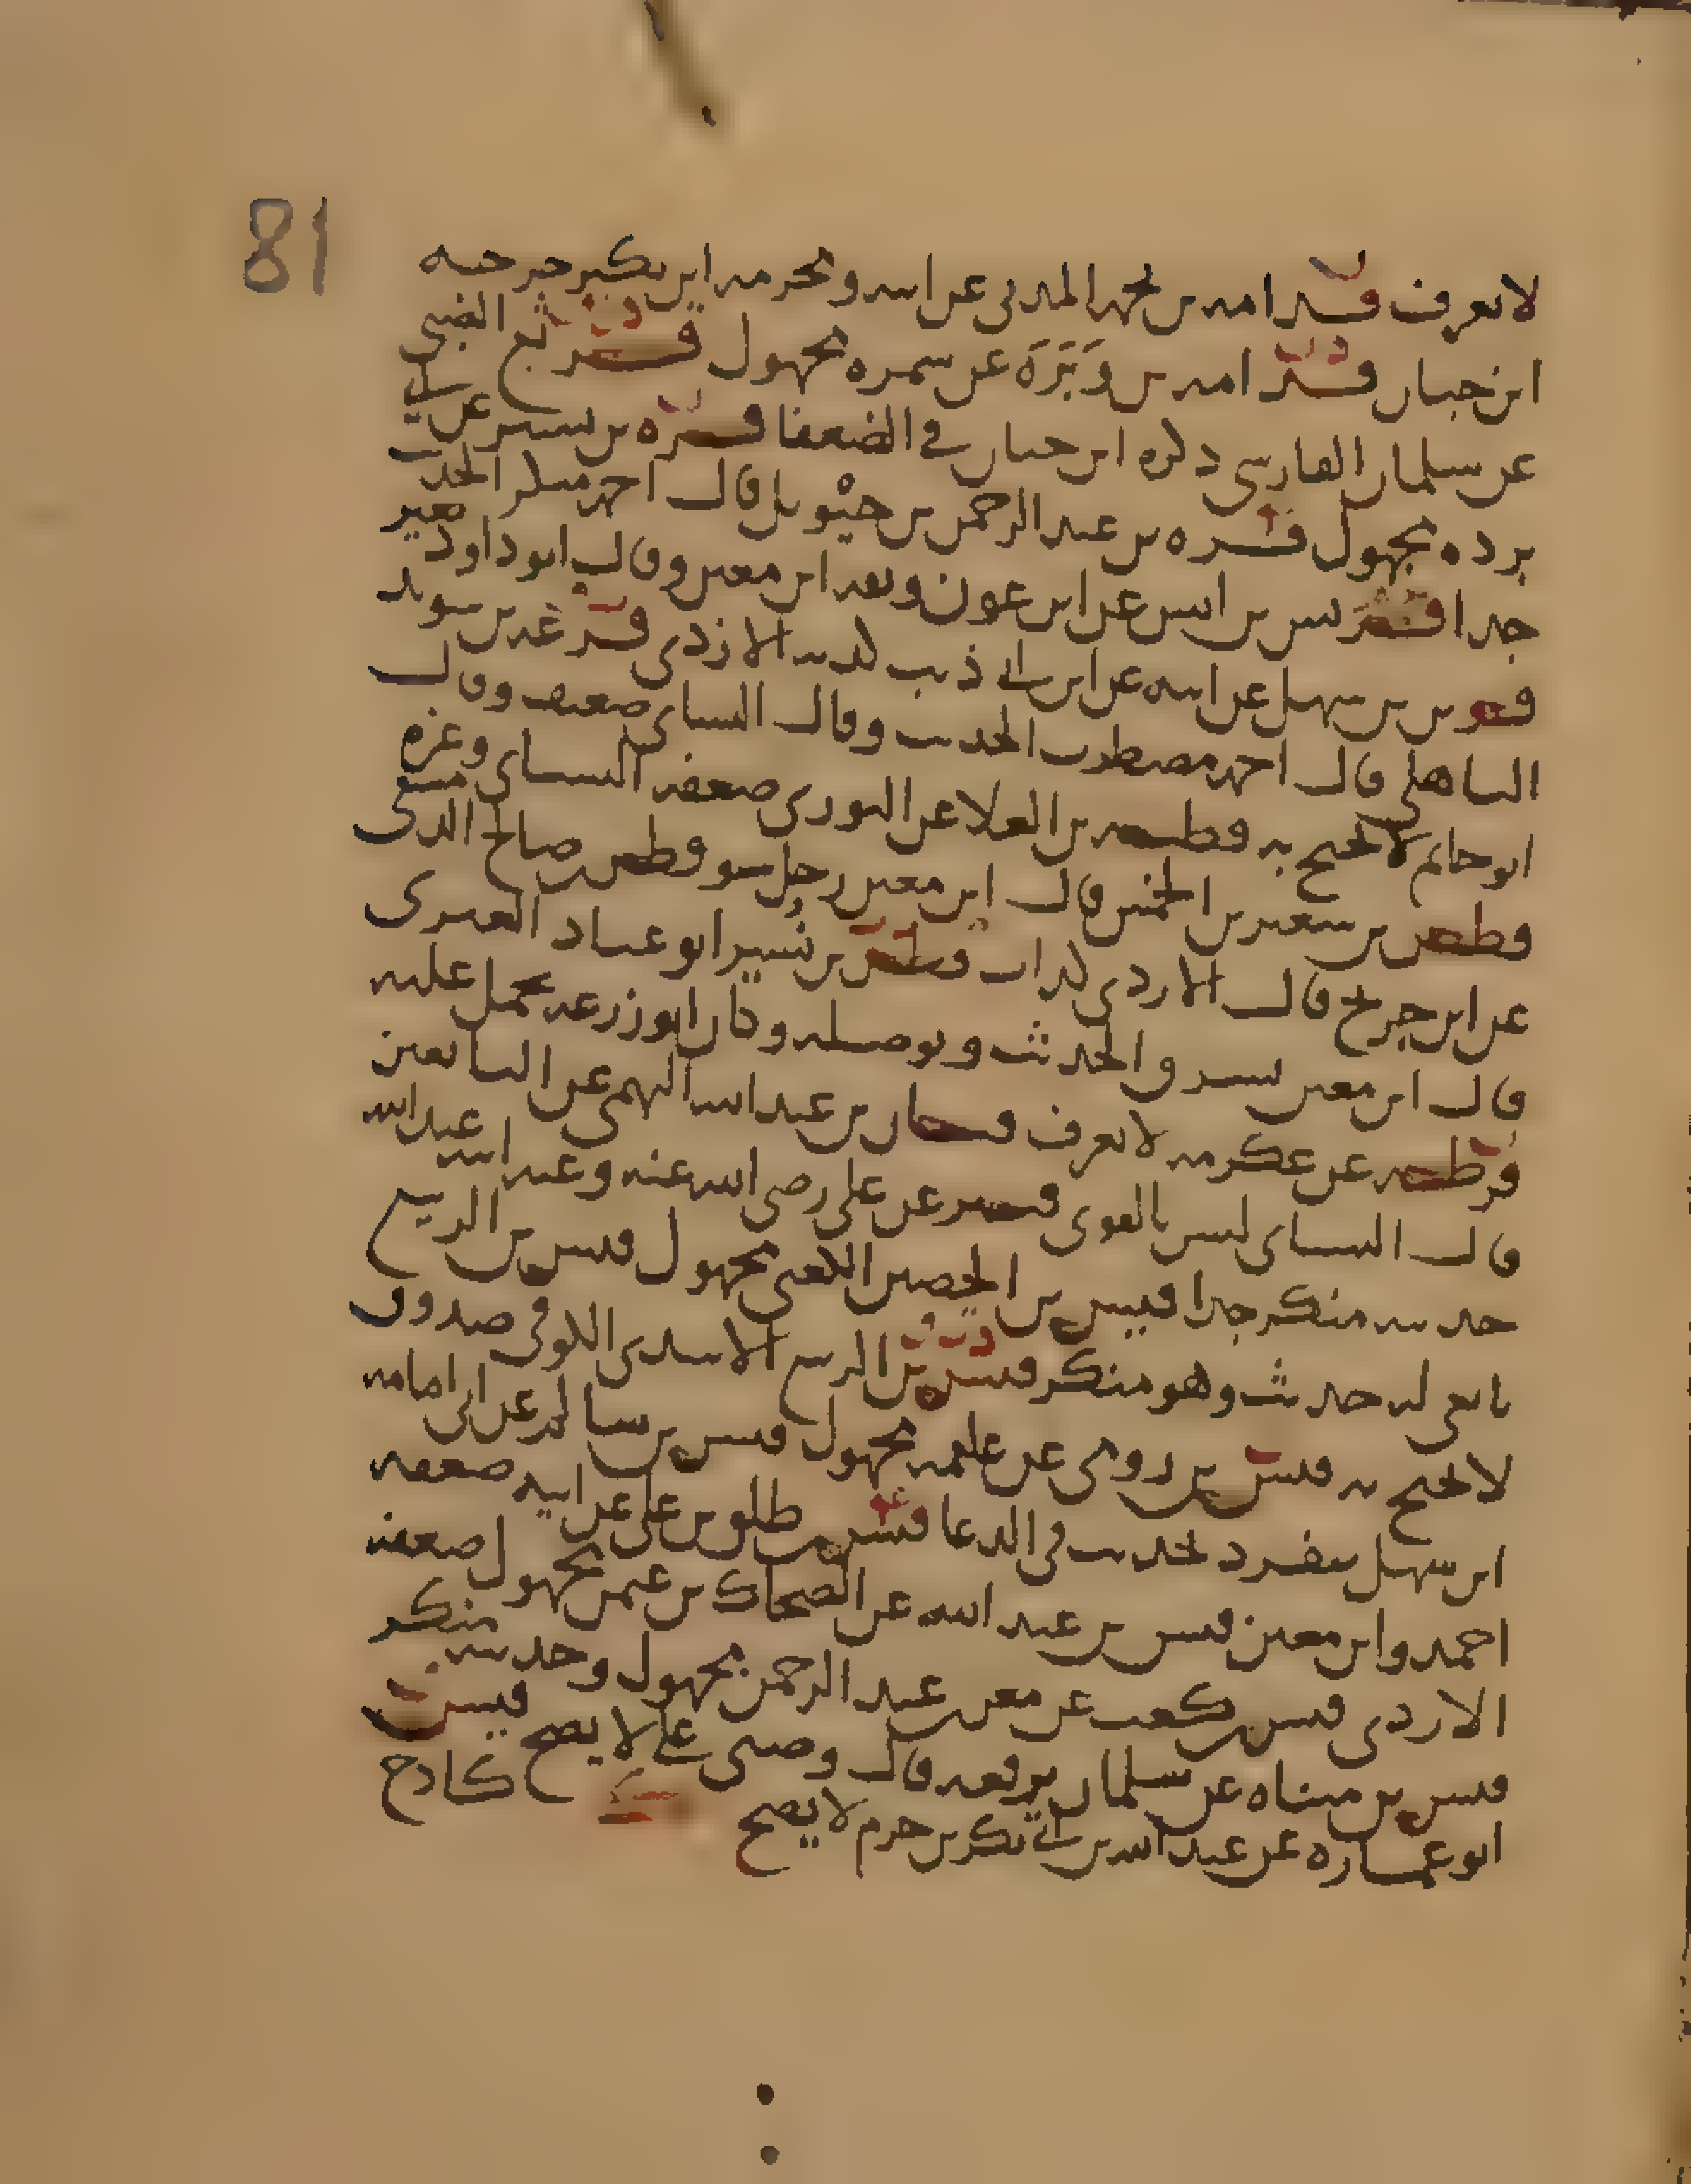 81
لا يعرف قدامه بن محمد المدني عن ابيه ومخرمه ابن بكير جرحه
ابن حبان قدامه بن وَبَرَة عن سمره مجهول قرثع الضبي
عن سلمان الفارسي ذكره ابن حبان في الضعفا قره بن بشر عن ابي
برده مجهول قره بن عبد الرحمن بن حيْويل قال احمد منكر الحديث
جدا قريش بن انس عن ابن عون وثقه ابن معين وقال ابو داود تغير
قرين بن سهل عن ابيه عن ابن ابي ذيب كذبه الازدي قزعه بن سويد
الباهلي قال احمد مضطرب الحديث وقال النساي ضعيف وقال
ابو حاتم لا يحتج به قطبه بن العلا عن الثوري ضعفه النساي وغيره
قطن بن سعير بن الخمس قال ابن معين رجل سو قطن بن صالح الدمشقي
عن ابن جريج قال الازدي كذاب قطن بن نُسير ابو عباد الغبري
قال ابن عدي يسرق الحديث ويوصله وكان ابو زرعه يحمل عليه
قرطمه عن عكرمه لا يعرف قعنب بن عبد الله التميمي عن التابعين
قال النساي ليس بالقوي قنبر عن علي رضي الله عنه وعنه ابنه عبد الله
حديثه منكر جدا قيس بن الحصين الكعبي مجهول قيس بن الربيع
تابعي له حديث وهو منكر قيس بن الربيع الاسدي الكوفي صدوق
لا يحتج به قيس بن رومي عن علقمه مجهول قيس بن سالم عن ابي امامه
ابن سهل ينفرد بحديث في الدعا قيس بن طلق بن علي عن ابيه ضعفه
احمد وابن معين قيس بن عبد الله عن الضحاك بن عمر مجهول ضعفه
الازدي قيس بن كعب عن معن بن عبد الرحمن مجهول وحديثه منكر
قيس بن ميناه عن سلمان يرفعه قال وصيي علي لا يصح قيس
ابو عماره عن عبد الله بن ابي بكر بن حزم لا يصح ك كادح